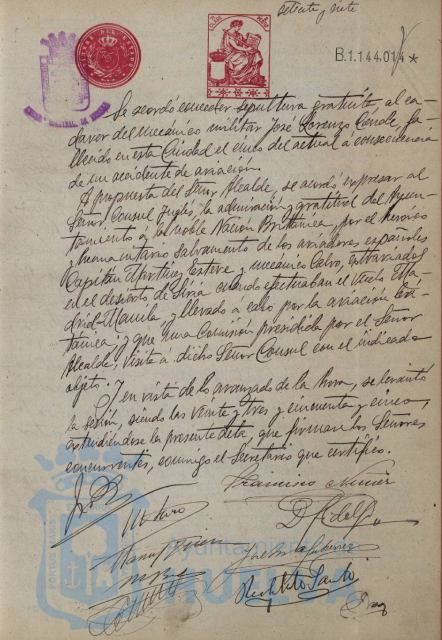 setenta y siete
B.1.144.014 *
Se acordó conceder sepultura gratuita al ca-
dáver del mecánico militar José Lorenzo Conde, fa-
llecido en esta Ciudad el cinco del actual a consecuencia
de un accidente de aviación.
A propuesta del Señor Alcalde, se acordó expresar al
Señor Consul Inglés, la admiración y gratitud del Ayun-
tamiento a la noble Nación Británica, por el heroico
y humanitario salvamento de los aviadores españoles
Capitán Martínez Esteve y mecánico Calvo, extraviados
en el desierto de Siria cuando efectuaban el vuelo Ma-
drid-Manila y llevado a cabo por la aviación bri-
tánica; y que una Comisión presidida por el Señor
Alcalde, visite a dicho Señor Consul con el indicado
objeto.
Y en vista de lo avanzado de la hora, se levantó
la sesión, siendo las veinte y tres y cincuenta y cinco,
extendiéndose la presente Acta, que firman los Señores
concurrentes, conmigo el Secretario que certifico.
Ayuntamiento de
HUELVA